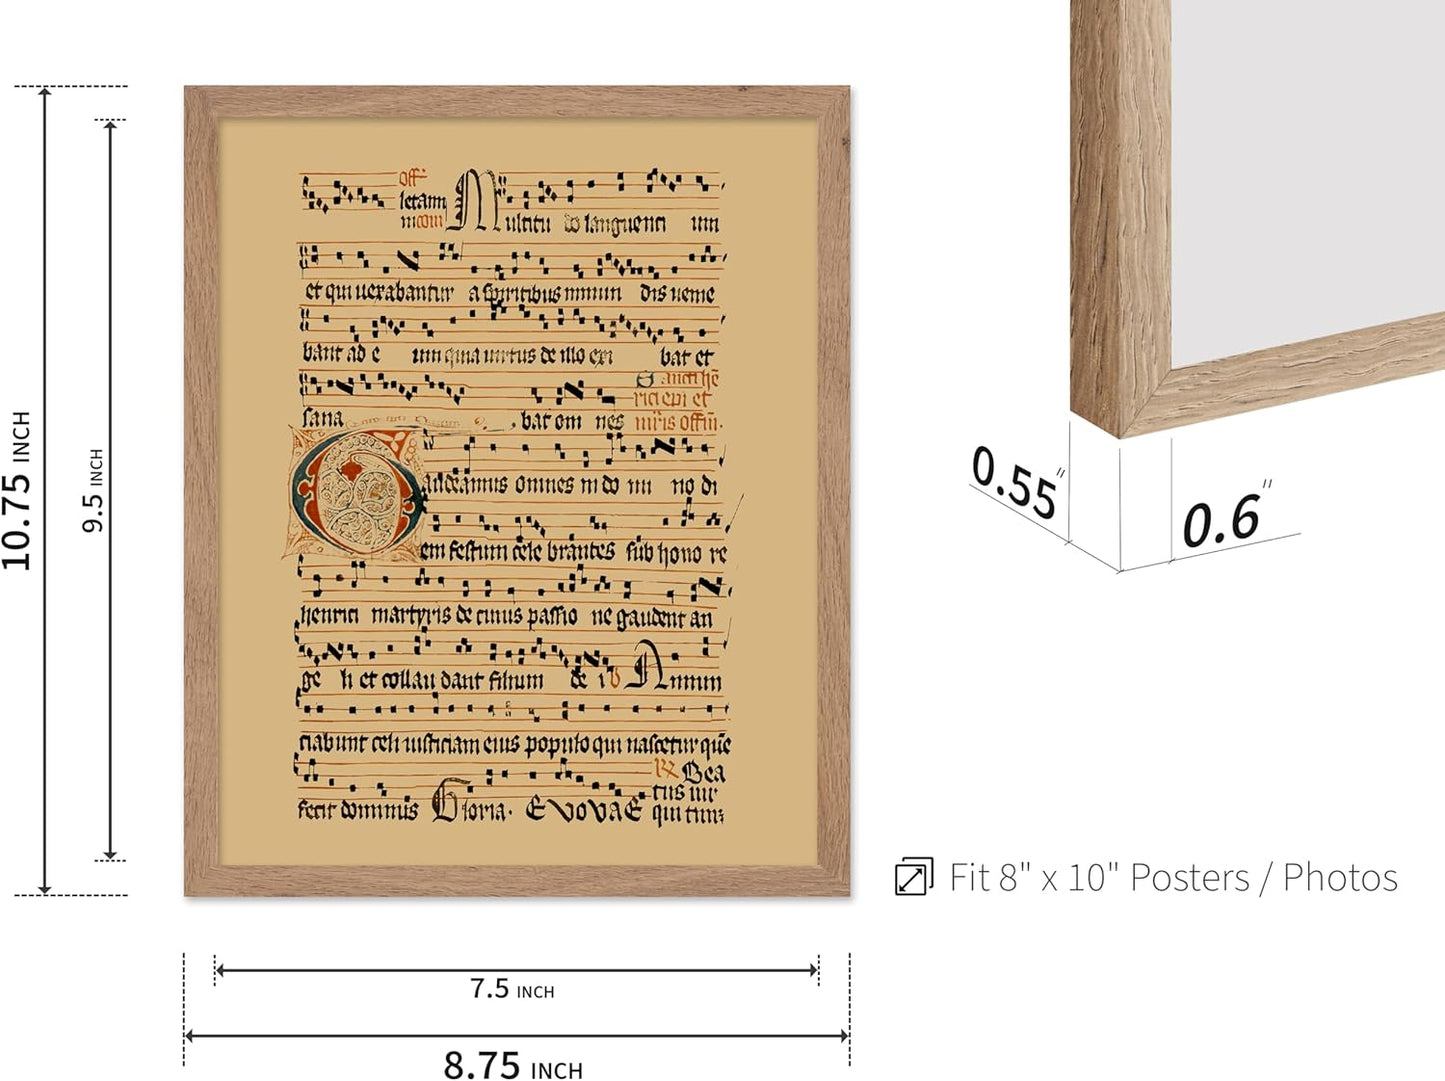 10.75 INCH
9.5 INCH
off
letam
m com
Multitu do languenti um
et qui uexabantur a spiritibus inmun dis ueni
bant ad e um quia uirtus de illo exi bat et
sana bat om nes
Gaudeamus omnes in do mi no di
em festum cele brantes sub hono re
henrici martyris de cuius passio ne gaudent an
ge li et collau dant filium de i Annun
ciabunt celi iusticiam eius populo qui nascetur que
Bea
tus uir
fecit dominus Gloria. EVOVAE qui
7.5 INCH
8.75 INCH
0.55"
0.6"
Fit 8" x 10" Posters / Photos